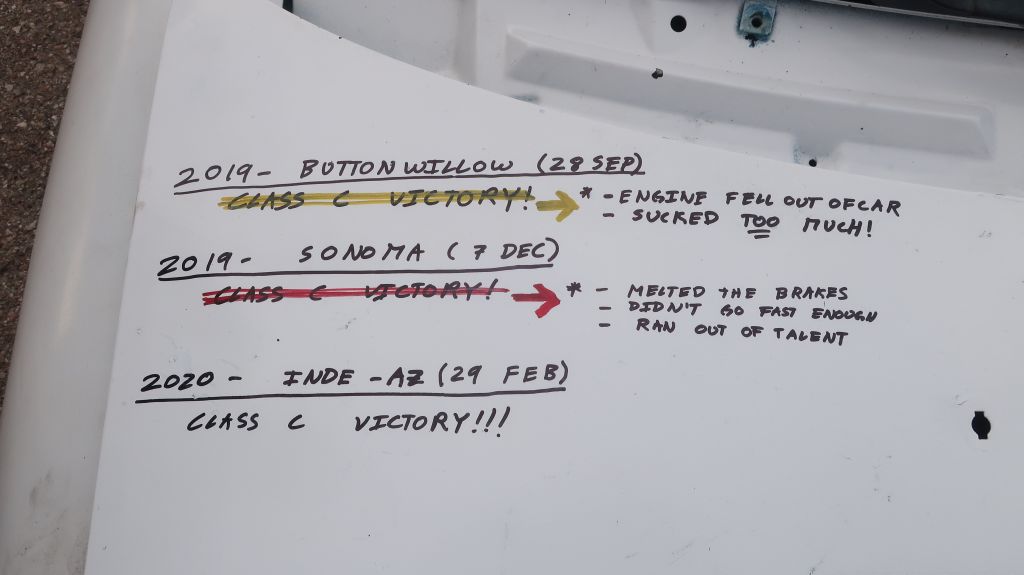 2019- BUTTONWILLOW (28 SEP)
CLASS C VICTORY! * - ENGINE FELL OUT OF CAR
- SUCKED TOO MUCH!
2019- SONOMA (7 DEC)
CLASS C VICTORY! * - MELTED THE BRAKES
- DIDN'T GO FAST ENOUGH
- RAN OUT OF TALENT
2020- INDE-AZ (29 FEB)
CLASS C VICTORY!!!